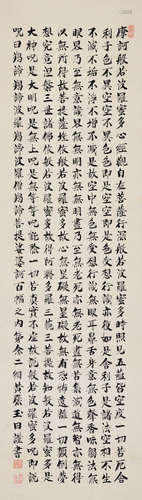 摩訶般若波羅蜜多心經觀自在菩薩行深般若波羅蜜多時照見五蘊皆空度一切苦厄舍
利子色不異空空不異色色即是空空即是色受想行識亦復如是舍利子是諸法空相不生
不滅不垢不淨不增不減是故空中無色無受想行識無眼耳鼻舌身意無色聲香味觸法無眼
界乃至無意識界無無明亦無無明盡乃至無老死亦無老死盡無苦集滅道無智亦無得
以無所得故菩提薩埵依般若波羅蜜多故心無罣礙無罣礙故無有恐怖遠離一切顛倒夢
想究竟涅槃三世諸佛依般若波羅蜜多故得阿耨多羅三藐三菩提故知般若波羅蜜多是
大神呪是大明呪是無上呪是無等等呪能除一切苦真實不虛故說般若波羅蜜多呪即說
呪曰揭諦揭諦波羅揭諦波羅僧揭諦菩提薩婆訶百幅之內第